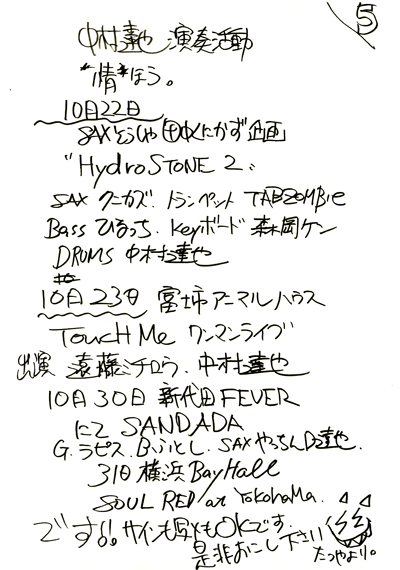 ⑤
中村達也 演奏活動
"情"ほう。
10月22日
SAX くにかず企画
"HydroSTONE 2"
SAX クニカズ トランペット TABZOMBIE
Bass ひなっち. Keyボード 森岡ケン
DRUMS 中村達也
10月23日 富士市アニマルハウス
ToucH Me ワンマンライブ
出演 遠藤ミチロウ. 中村達也
10月30日 新代田FEVER
にて SANDADA
G. ラピス. B.ふとし. SAX やっちん D達也.
31日 横浜 Bay Hall
SOUL RED at YokohaMa.
です!! サインも OKです.
是非おこし下さい
たつやより。